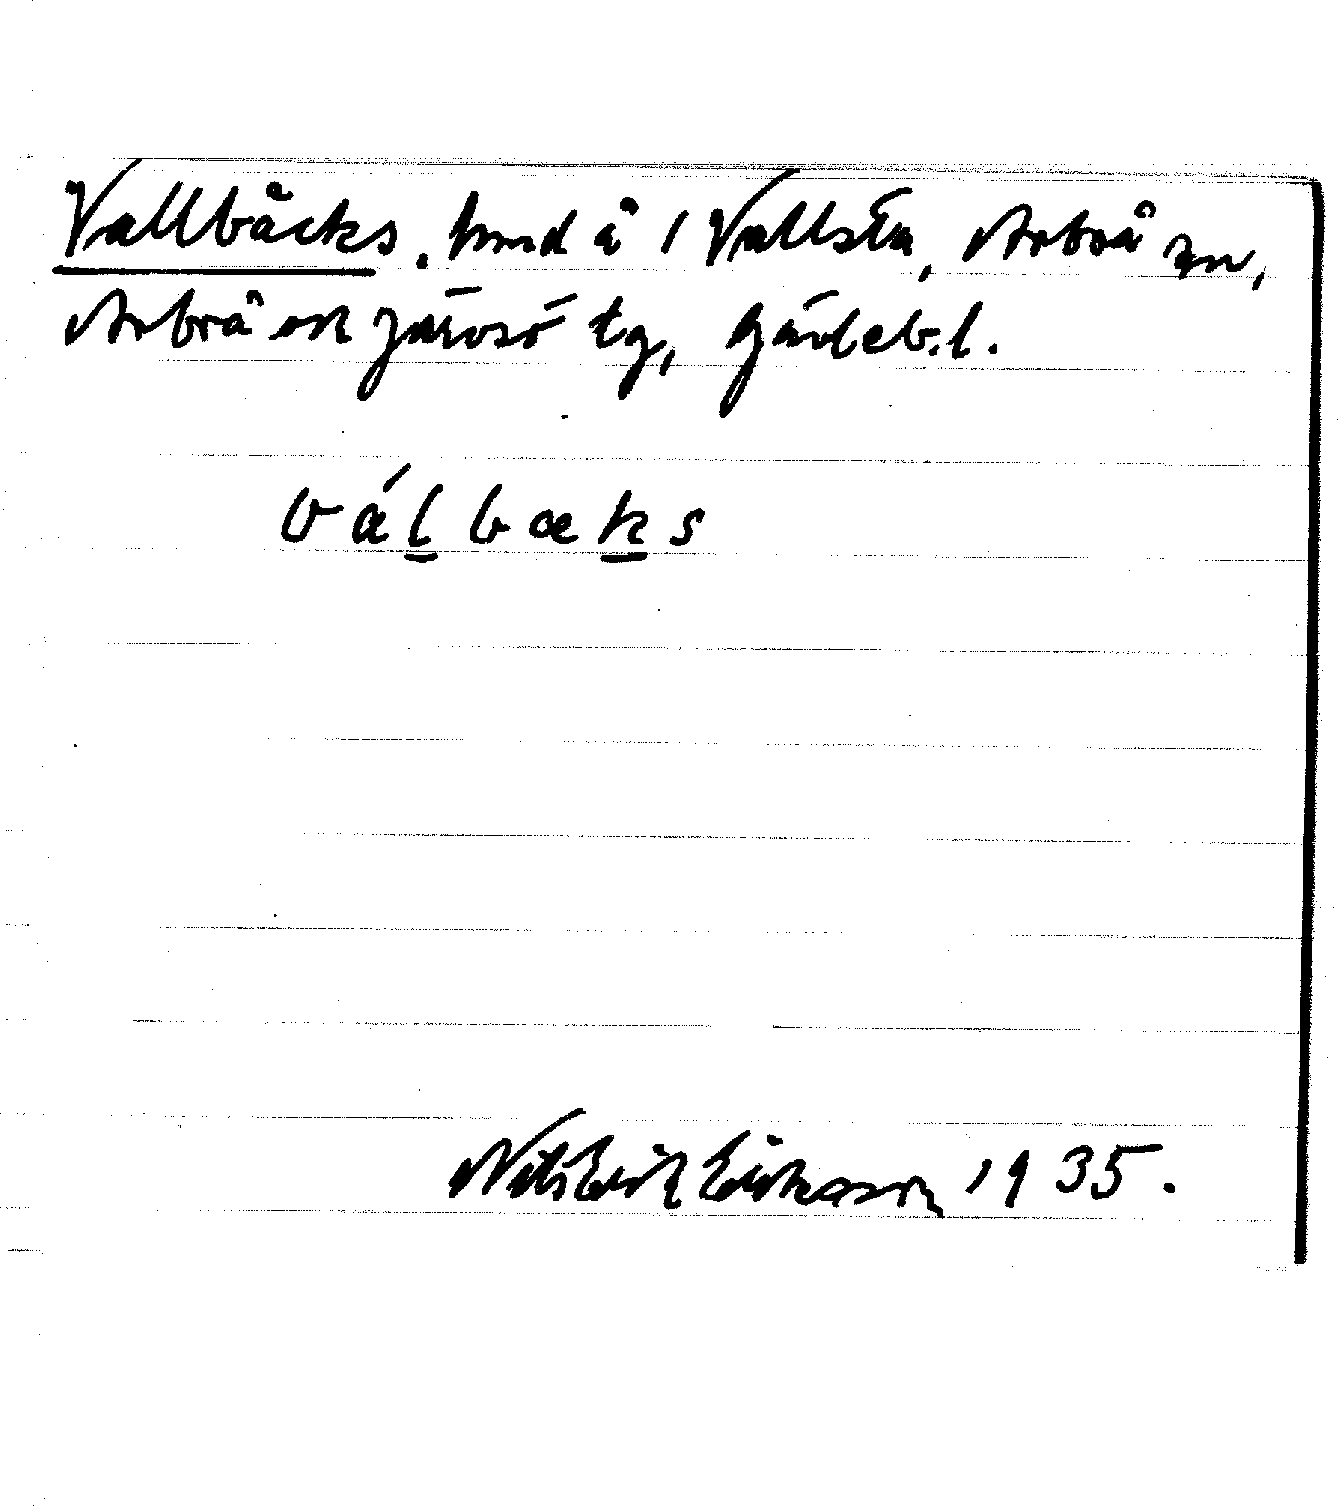 Vallbäcks, hmd å 1 Vallsta, Arbrå sn,
Arbrå och Järvsö tg, Gävleb.l.
válbæks
Nils Erik Eriksson 1935.